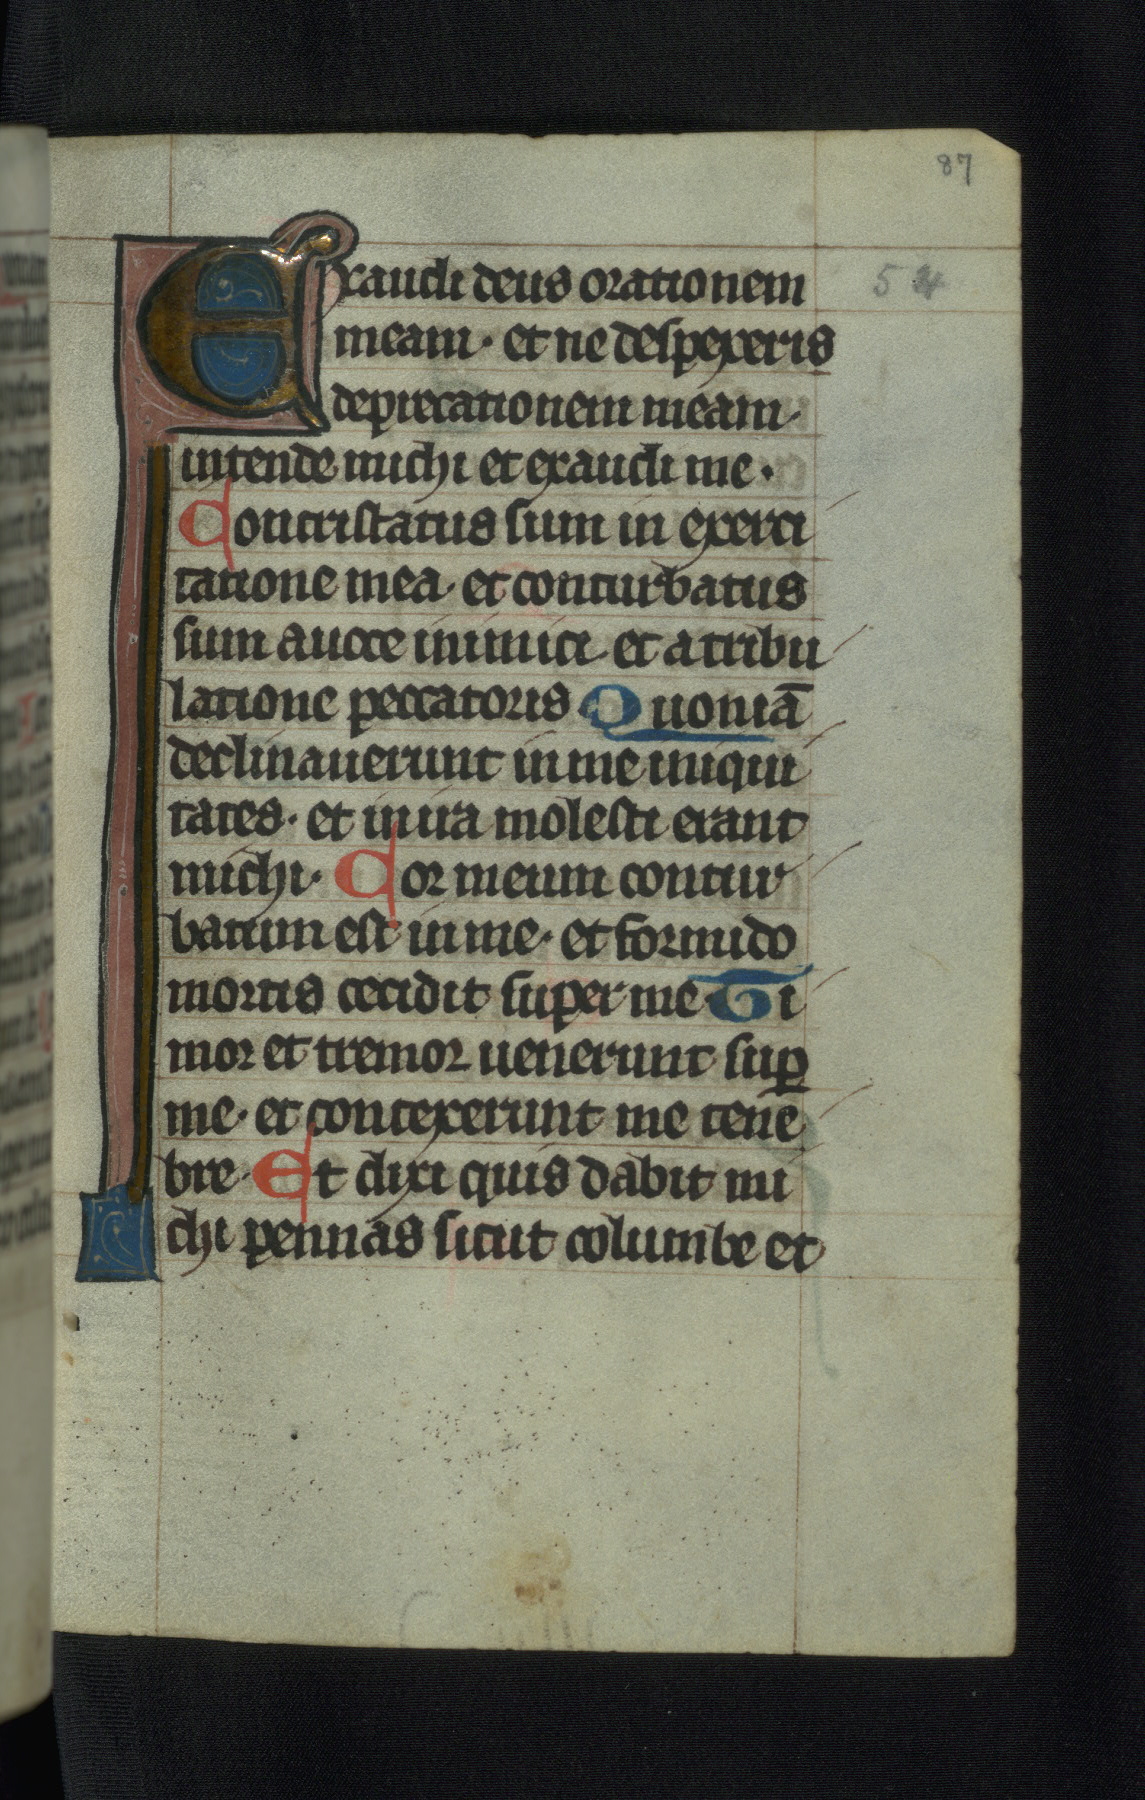 87
54
Exaudi deus orationem
meam · et ne despexeris
deprecationem meam ·
intende michi et exaudi me ·
Contristatus sum in exerci
tatione mea · et conturbatus
sum a uoce inimici · et a tribu
latione peccatoris Quoniā
declinauerunt in me iniqui
tates · et in ira molesti erant
michi · Cor meum contur
batum est in me · et formido
mortis cecidit super me Ti
mor et tremor uenerunt sup̱
me · et contexerunt me tene
bre · Et dixi quis dabit mi
chi pennas sicut columbe et